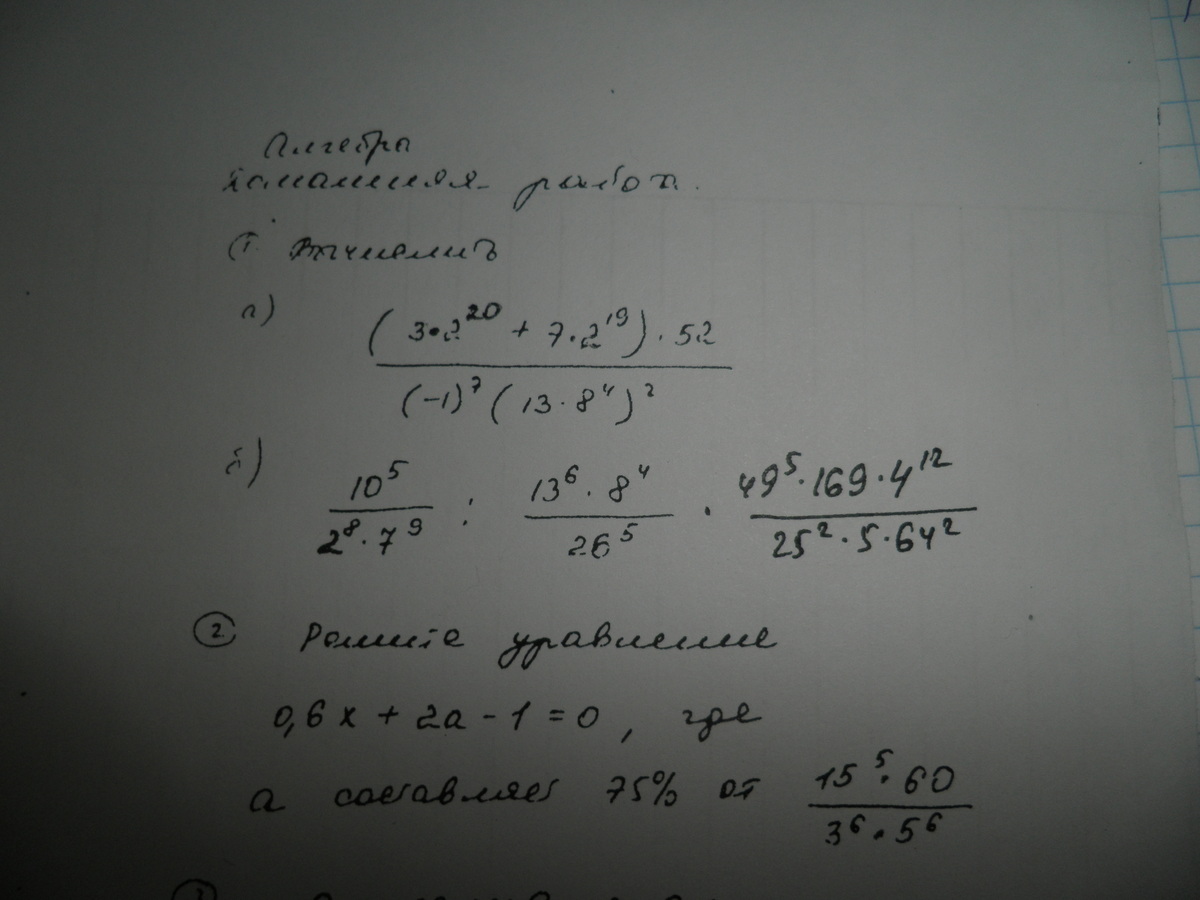 Алгебра
домашняя работа.
1. Вычислить
а) (3·2²⁰ + 7·2¹⁹)·52 / (-1)⁷(13·8⁴)²
б) 10⁵ / 2⁸·7⁹ : 13⁶·8⁴ / 26⁵ · 49⁵·169·4¹² / 25²·5·64²
② Решите уравнение
0,6x + 2a - 1 = 0, где
a составляет 75% от 15⁵·60 / 3⁶·5⁶